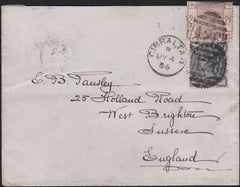 GIBRALTAR
MY 4
86
E. B. Tansley
25 Holland Road
West Brighton
Sussex
England